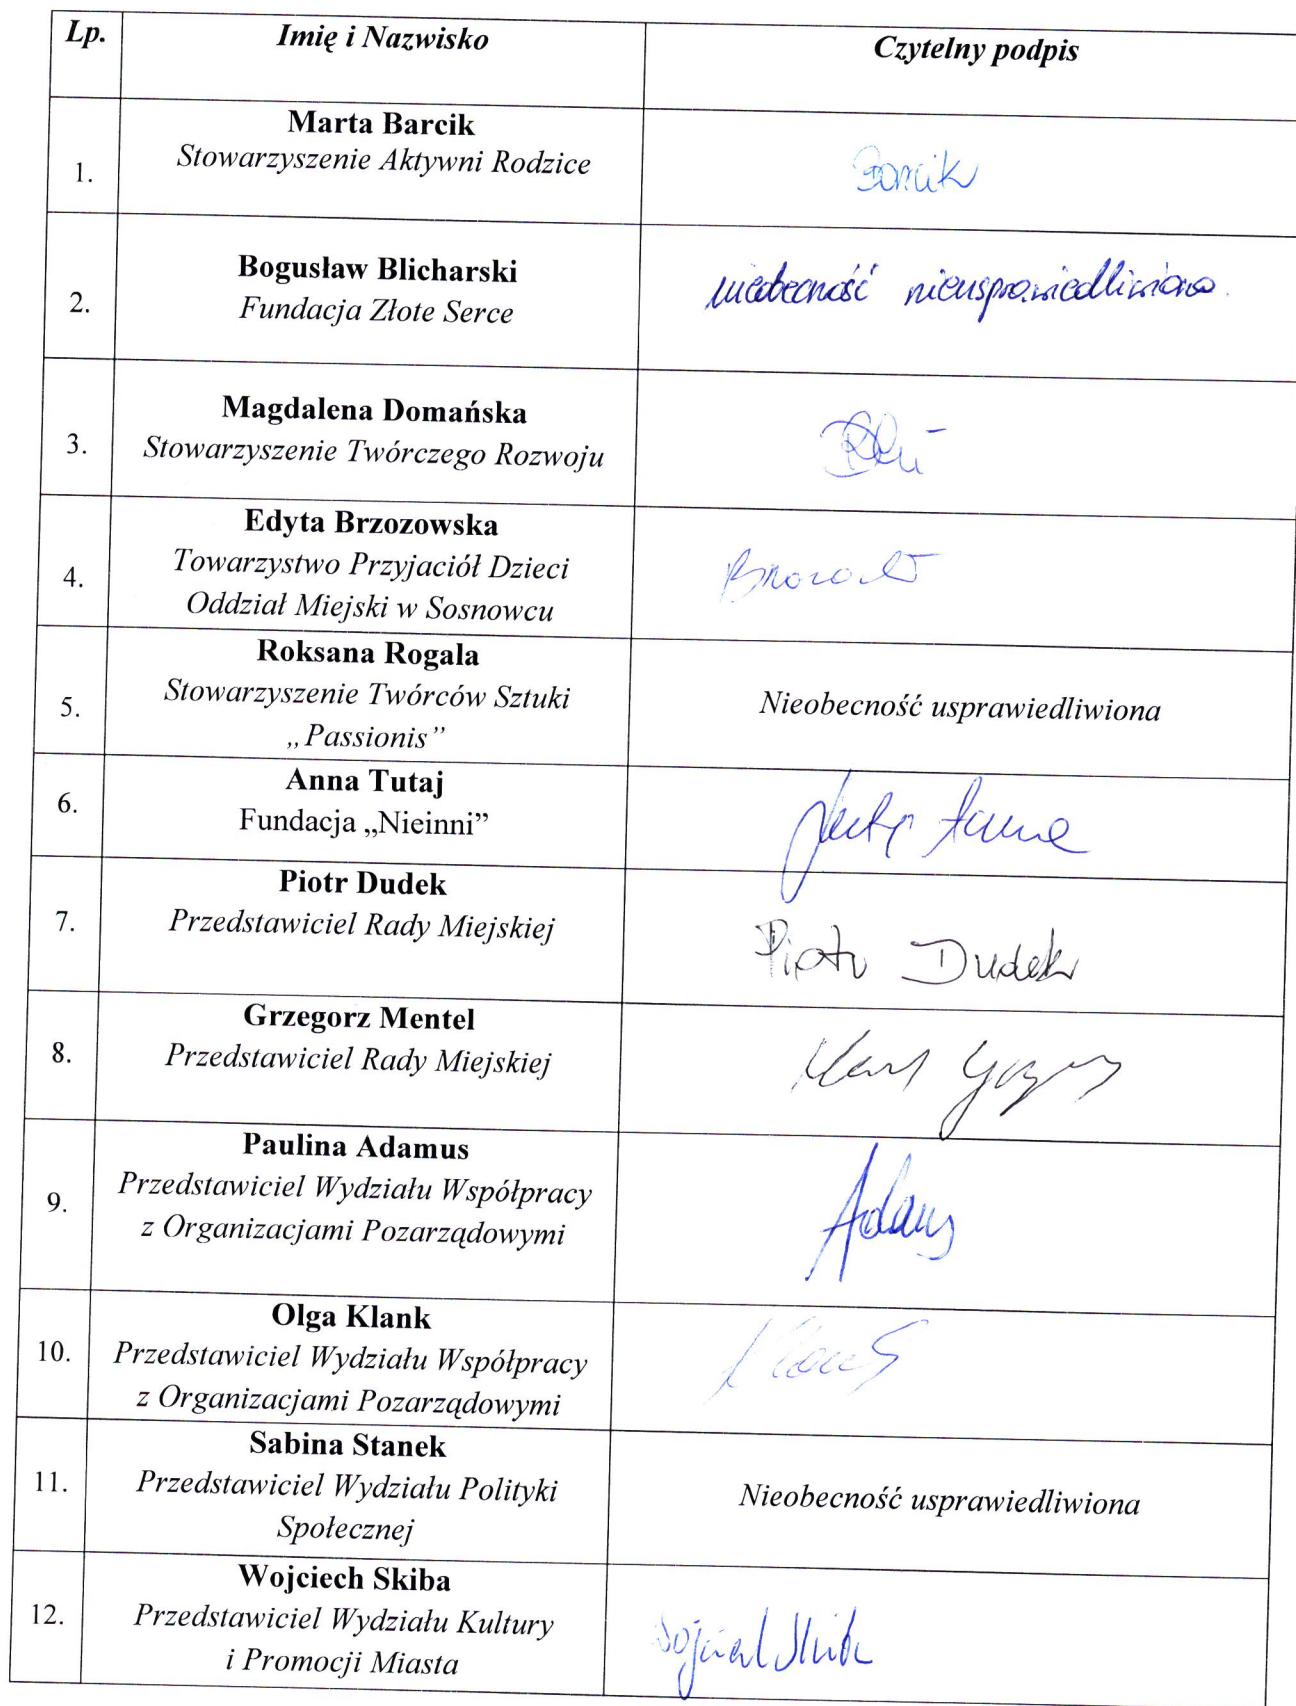 Lp.
Imię i Nazwisko
Czytelny podpis
1.
Marta Barcik
Stowarzyszenie Aktywni Rodzice
Barcik
2.
Bogusław Blicharski
Fundacja Złote Serce
nieobecność nieusprawiedliwiona.
3.
Magdalena Domańska
Stowarzyszenie Twórczego Rozwoju
4.
Edyta Brzozowska
Towarzystwo Przyjaciół Dzieci
Oddział Miejski w Sosnowcu
5.
Roksana Rogala
Stowarzyszenie Twórców Sztuki
„Passionis”
Nieobecność usprawiedliwiona
6.
Anna Tutaj
Fundacja „Nieinni”
Anna
7.
Piotr Dudek
Przedstawiciel Rady Miejskiej
Piotr Dudek
8.
Grzegorz Mentel
Przedstawiciel Rady Miejskiej
9.
Paulina Adamus
Przedstawiciel Wydziału Współpracy
z Organizacjami Pozarządowymi
10.
Olga Klank
Przedstawiciel Wydziału Współpracy
z Organizacjami Pozarządowymi
11.
Sabina Stanek
Przedstawiciel Wydziału Polityki
Społecznej
Nieobecność usprawiedliwiona
12.
Wojciech Skiba
Przedstawiciel Wydziału Kultury
i Promocji Miasta